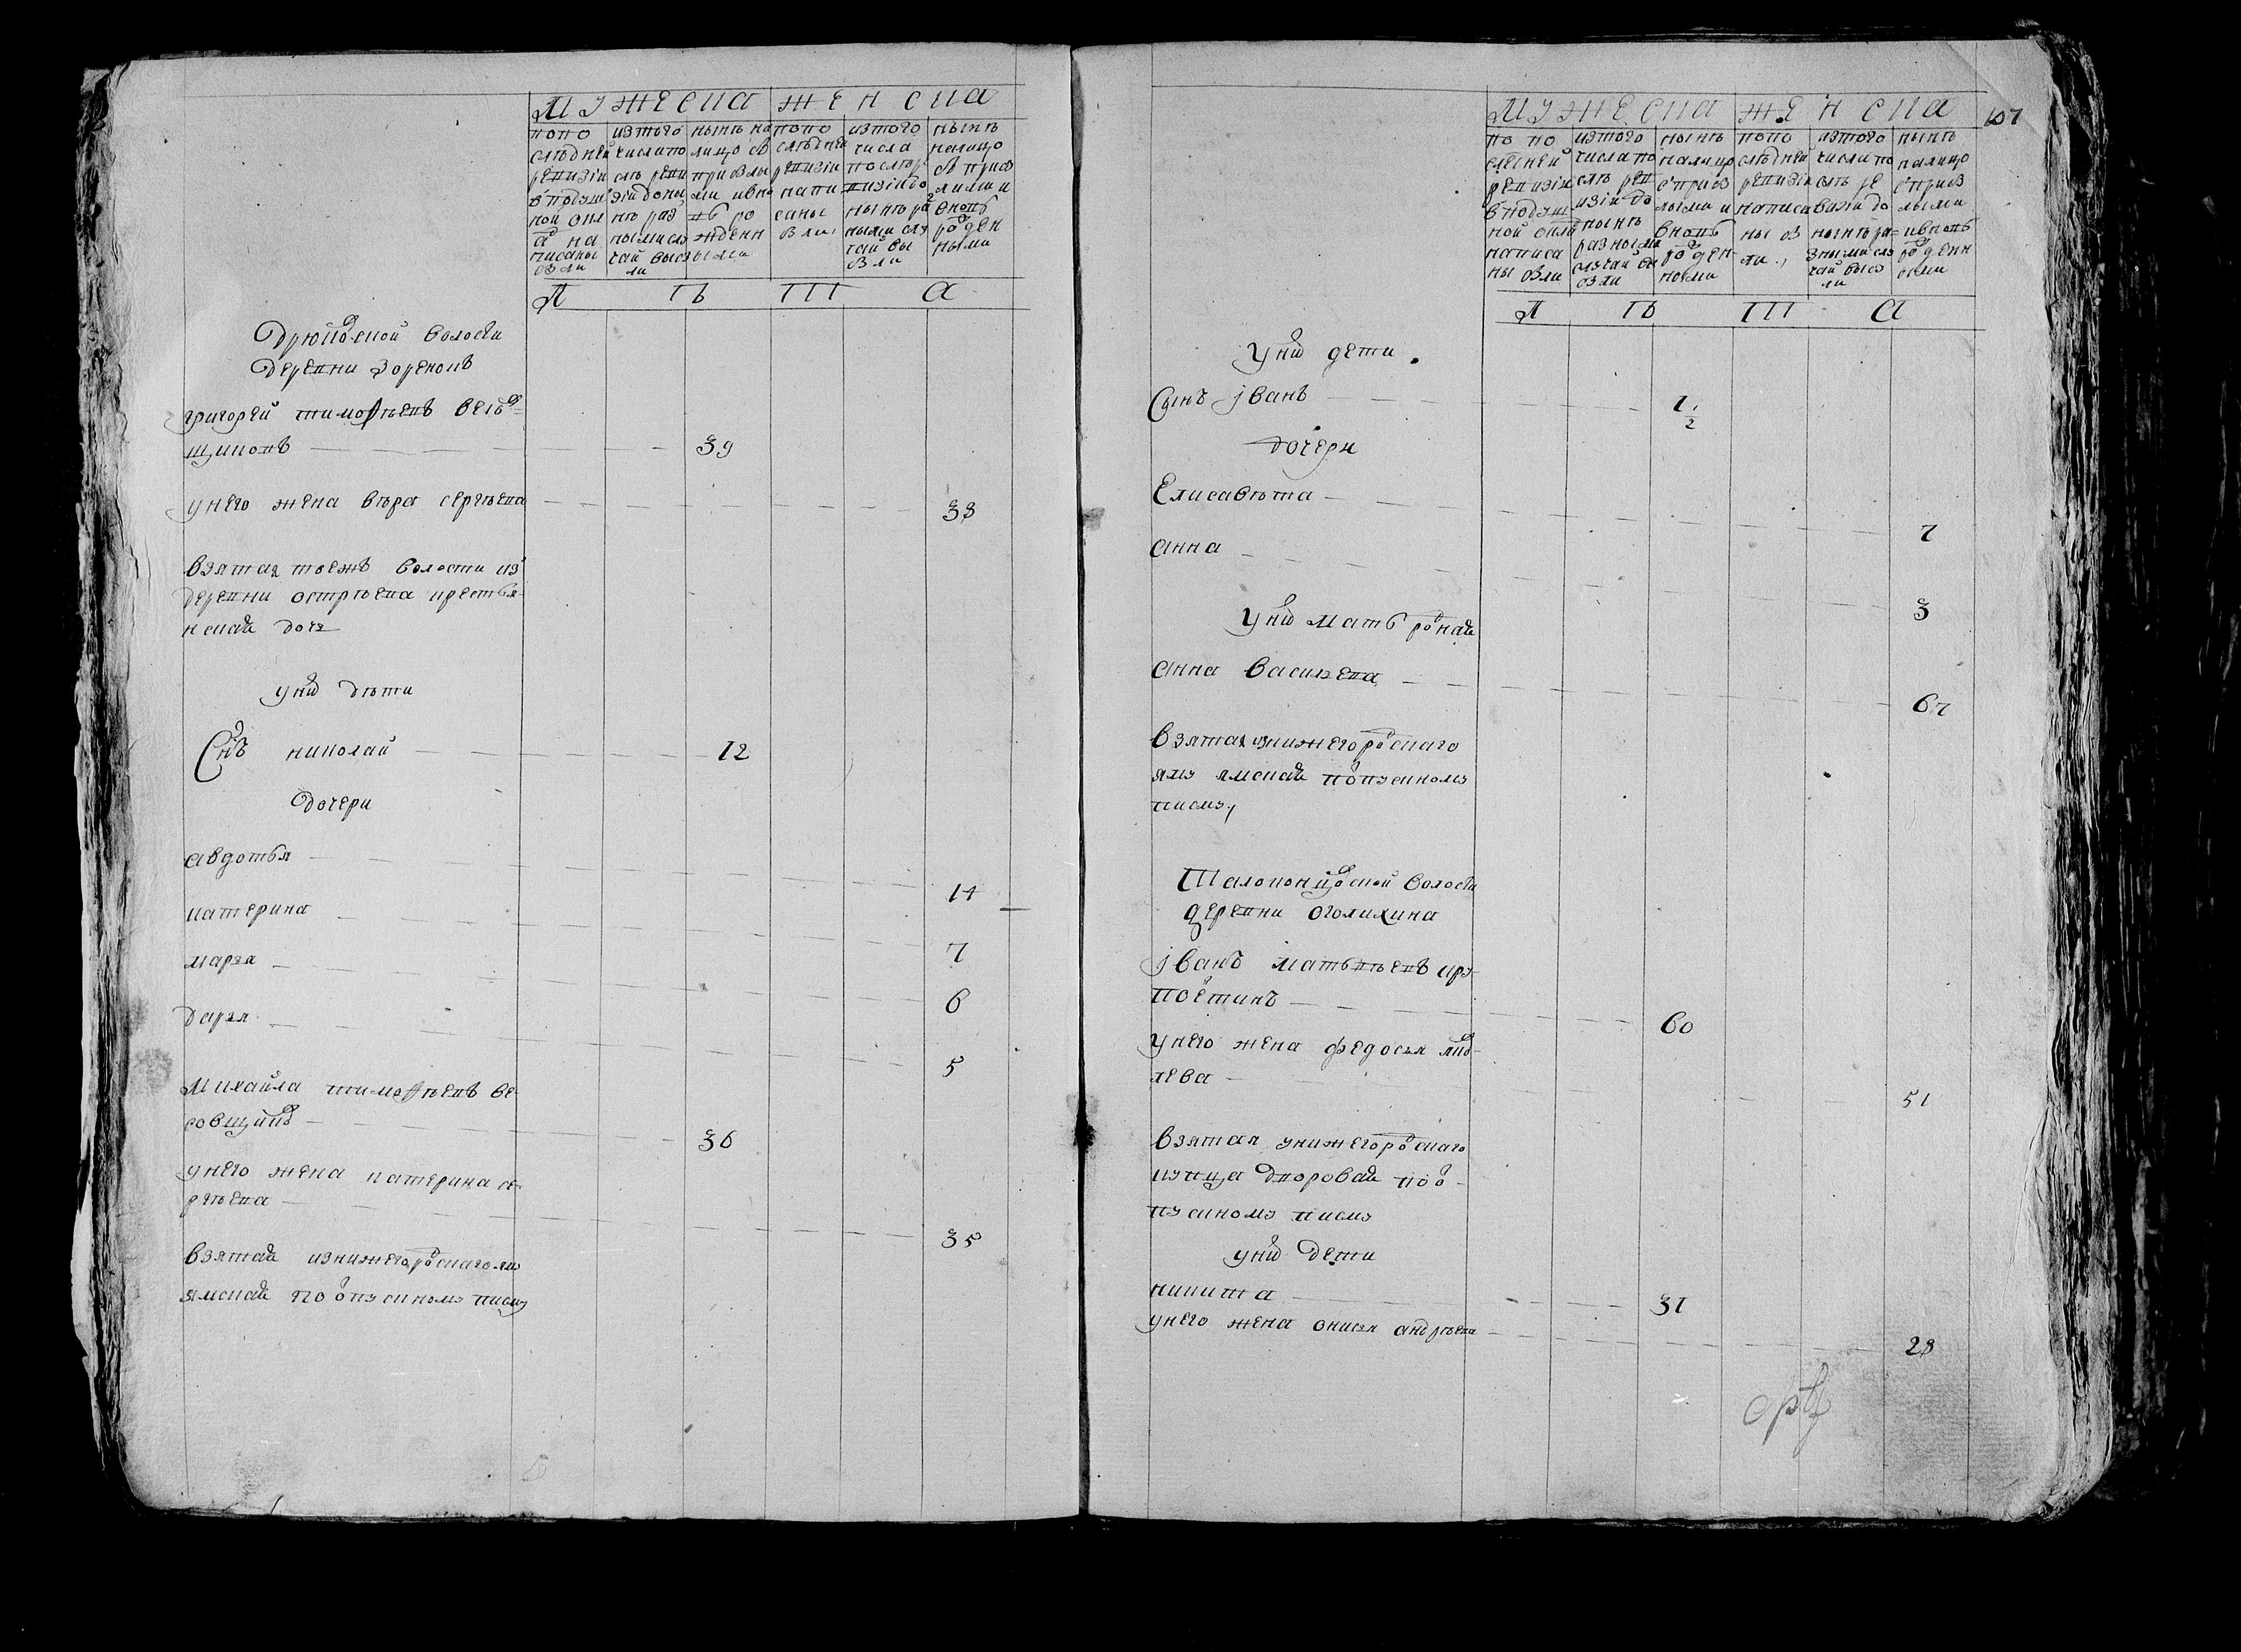 МУЖЕСКА ЖЕНСКА
по по
следней
ревизіи
в подуш
ной окл
ад на
писаны
были
из того
числа по
сль реви
зіи до ны
нѣ раз
ными слу
чаи выбы
ли
нынѣ на
лицо съ
прибылы
ми и вно
вь ро
жденн
ыми
по по
следней
ревизіи
напи
саны
были
из того
числа
после ре
визіи до
нынѣ раз
ными слу
чаи вы
были
нынѣ
налицо
съ прибы
лыми и
вновь
рожден
ными
Л ТЬ ТІІ А
деревни Зорековъ
григорей тимофеевъ
щиковъ 39
у него жена вѣра сергѣева 38
взятая тоежъ волости из
деревни острѣева крестья
нская дочь
у них дѣти
Снъ николай 12
дочери
авдотья 14
катерина 7
марья 6
дарья 5
Михайла тимофѣевъ ве
ровщиковъ 36
у него жена катерина се
ргѣева 35
взятая из нижегородскаго яму
ямская по отпускному писму
107
МУЖЕСКА ЖЕНСКА
по по
следней
ревизіи
в подуш
ной окла
написа
ны были
из того
числа по
слѣ рев
изіи до
нынѣ
разными
случаи вы
были
нынѣ
налицо
с прибы
лыми и
вновь
рожден
ными
по по
следней
ревизіи
написа
ны бы
ли
из того
числа по
слѣ ре
визіи до
нынѣ ра
зными слу
чаи выбы
ли
нынѣ
налицо
с прибы
лыми
и вновь
рожденн
ыми
Л ТЬ ТІІ А
у них дети
Сынъ іванъ 1 1/2
дочери
Елисавѣта 7
анна 3
у них мать родная
анна васильева 67
взятая из нижегородскаго
яму ямская по отпускному
писму
Шалоконцовской волости
деревни оголихина
іванъ матвѣевъ кру
поетинъ 60
у него жена федосья яков
лева 51
взятая у нижегородскаго
купца дворовая по от
пускному писму
у них дети
никита 31
у него жена оксинья андрѣева 28